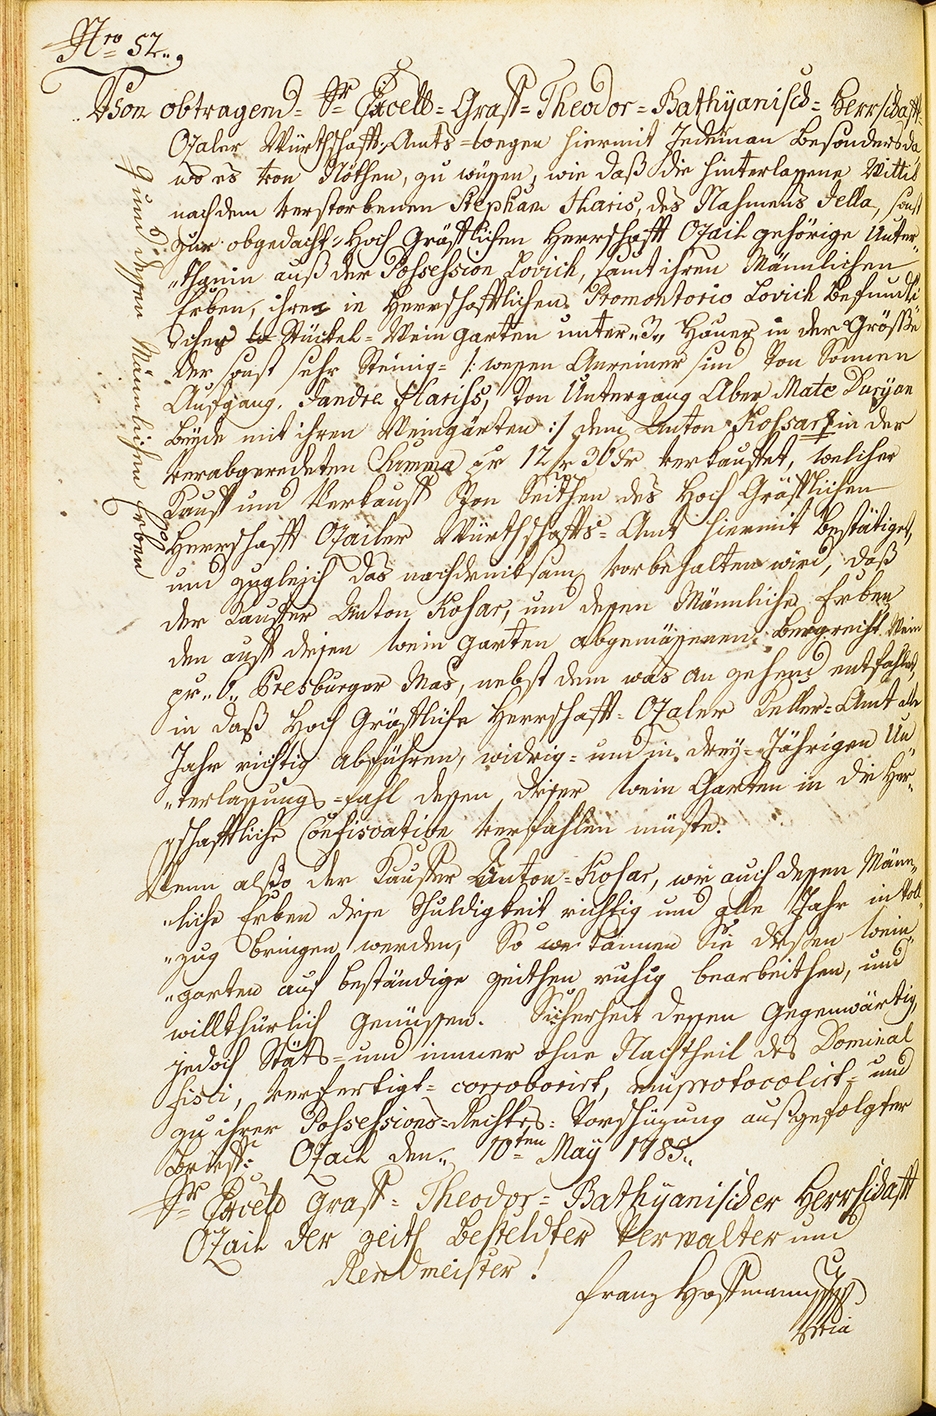 Nro 52.
Von obtragend= Sr Excell= Graff= Theodor= Bathÿanisch= Herrschafft=
Ozaler Würthschafft=Amts=wegen hiermit Jedeman Besonders da
wo es von Nöthen, zu wüssen, wie daß die hinterlassene Wittib
nach dem verstorbenen Stephan Haris, des Nahmens Jella, sonst
zur obgedacht=Hoch Gräfflichen Herrschafft Ozail gehörige Unter=
„thanin auß der Possession Lovich, samt ihren Männlichen
Erben, ihren in Herrschafftlichen Promontorio Lovich befindli
„chen Stückel=Wein garten unter „3„ Hauer in der Größße
der sonst sehr Steinig= /: wessen Anreiner sind Von Sonnen
Aufgang, Jandre Hariss, Von Untergang Aber Mate Duzÿan
beyde mit ihren Weingärten :/ dem Anton Kossar in der
verabgeredeten Summa pr 12 fr 30 Xr verkauffet, welcher
Kauff und Verkauff Von Seithen des Hoch Gräfflichen
Herrschafft Ozailer Würthschaffts=Amt hiermit bestätiget,
und zugleich das nachdruksam vorbehalten wird, daß
der Kauffer Anton Kosar, und dessen Männliche Erben
den auff diesen wein garten abgemässenen bergrecht Wein
pr „6„ Presburger Mas, nebst dem was an zehend entfahlet,
in daß Hoch Gräffliche Herrschafft=Ozaler Keller=Amt alle
Jahr richtig abführen, widrig= und in drey=Jährigen Un
„terlassungs=fahl dessen dieser wein Garten in die Her„
„schafftliche Confiscation verfahlen müste.
Wenn also der Kauffer Anton=Kosar, wie auch dessen Männ„
„liche Erben diese Schuldigkeit richtig und alle Jahr in Voll„
„zug bringen werden, So können Sie diessen wein„
„garten auf beständige zeithen ruhig bearbeithen, und
willkührlich genüssen. Sicherheit dessen Gegenwärtig,
jedoch Stäts=und immer ohne Nachtheil des Dominal
fisci, verfertigt= corroborirt, einprotocolirt= und
zu ihrer Possessions=Rechts= Vorschüzung außgefolgter
brieff: Ozail den „10ten May 1785„
Sr Excell Graff=Theodor=Bathÿanischer Herrschafft
Ozail der zeith bestelter Verwalter und
Rendmeister!
Franz Hoffmann
und dessen Männlichen Erben